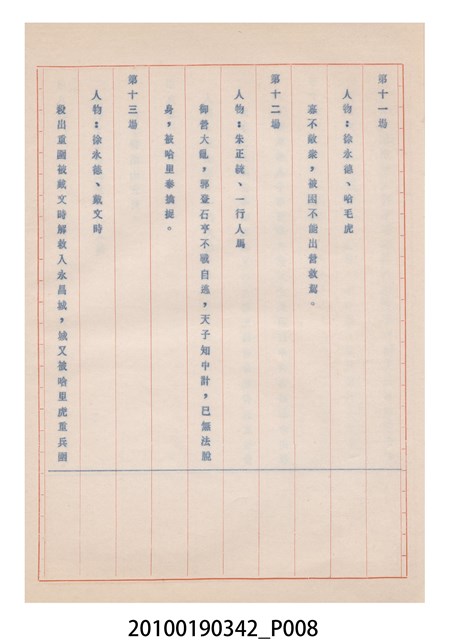 第十一場
人物：徐永德、哈毛虎
寡不敵衆，被困不能出營救駕。
第十二場
人物：朱正統、一行人馬
御營大亂，郭登石亨不戰自逃，天子知中計，已無法脫
身，被哈里泰擒捉。
第十三場
人物：徐永德、戴文時
殺出重圍被戴文時解救入永昌城，城又被哈里虎重兵圍
20100190342_P008